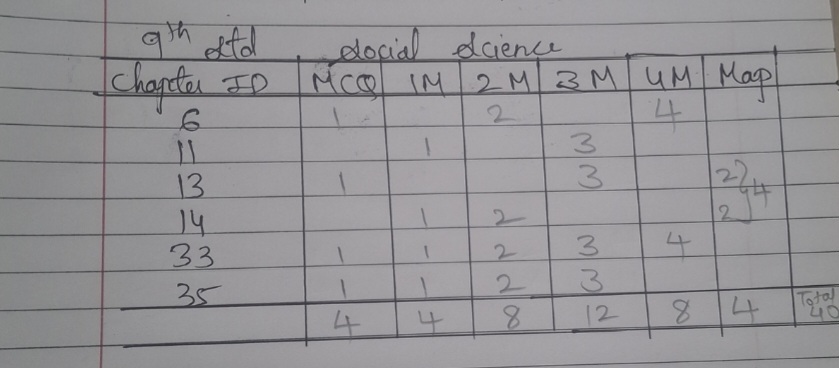 9th std social science
Chapter ID MCQ 1M 2M 3M 4M Map
6 1 2 4
11 1 3
13 1 3 2 } 4
14 1 2 2
33 1 1 2 3 4
35 1 1 2 3
4 4 8 12 8 4 Total 40